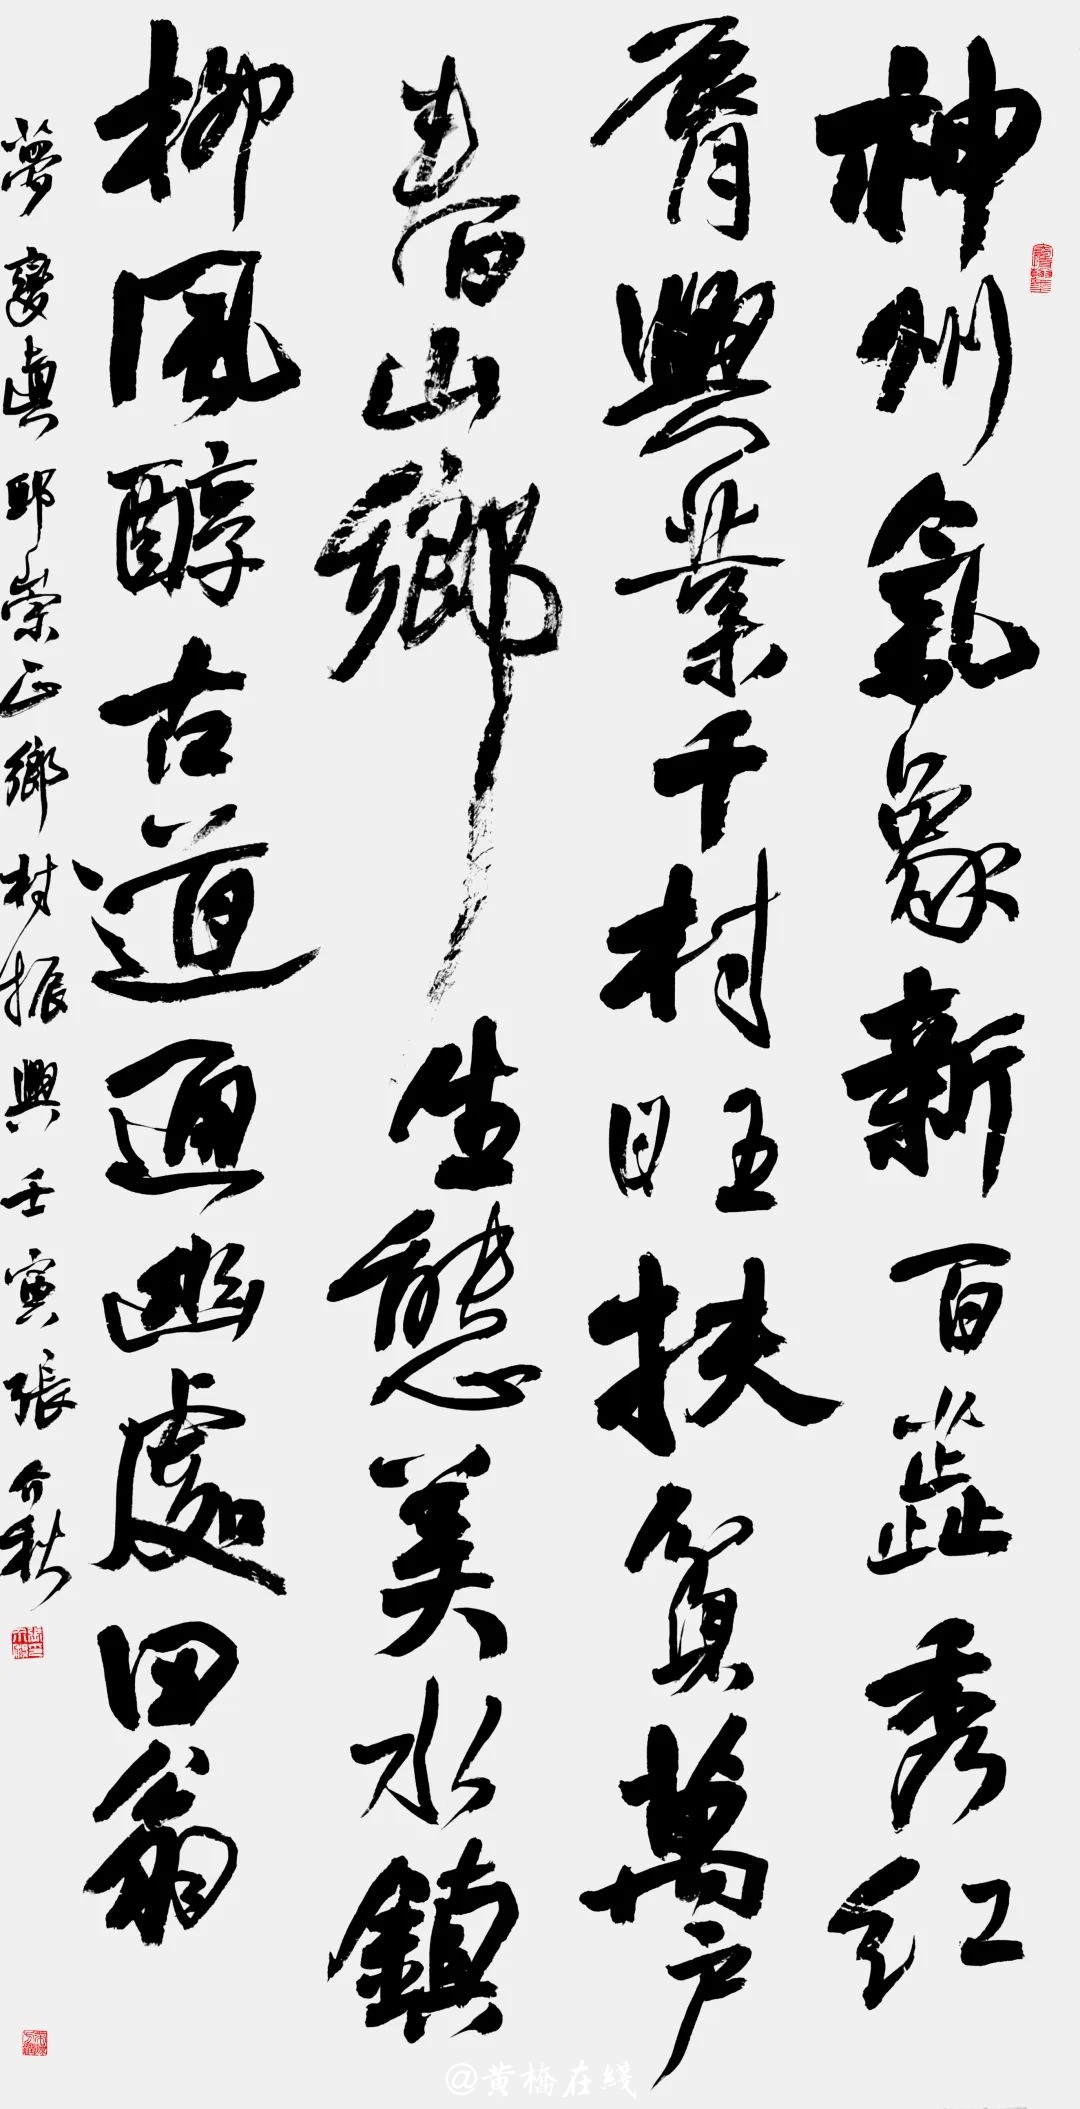 神州氣象新百蕋秀紅
脣興業千村旺扶貧萬戶
春山鄉生態美水鎮
柳風醇古道通幽處田翁
夢變真邱崇正鄉村振興壬寅張介秋
@黄橋在綫